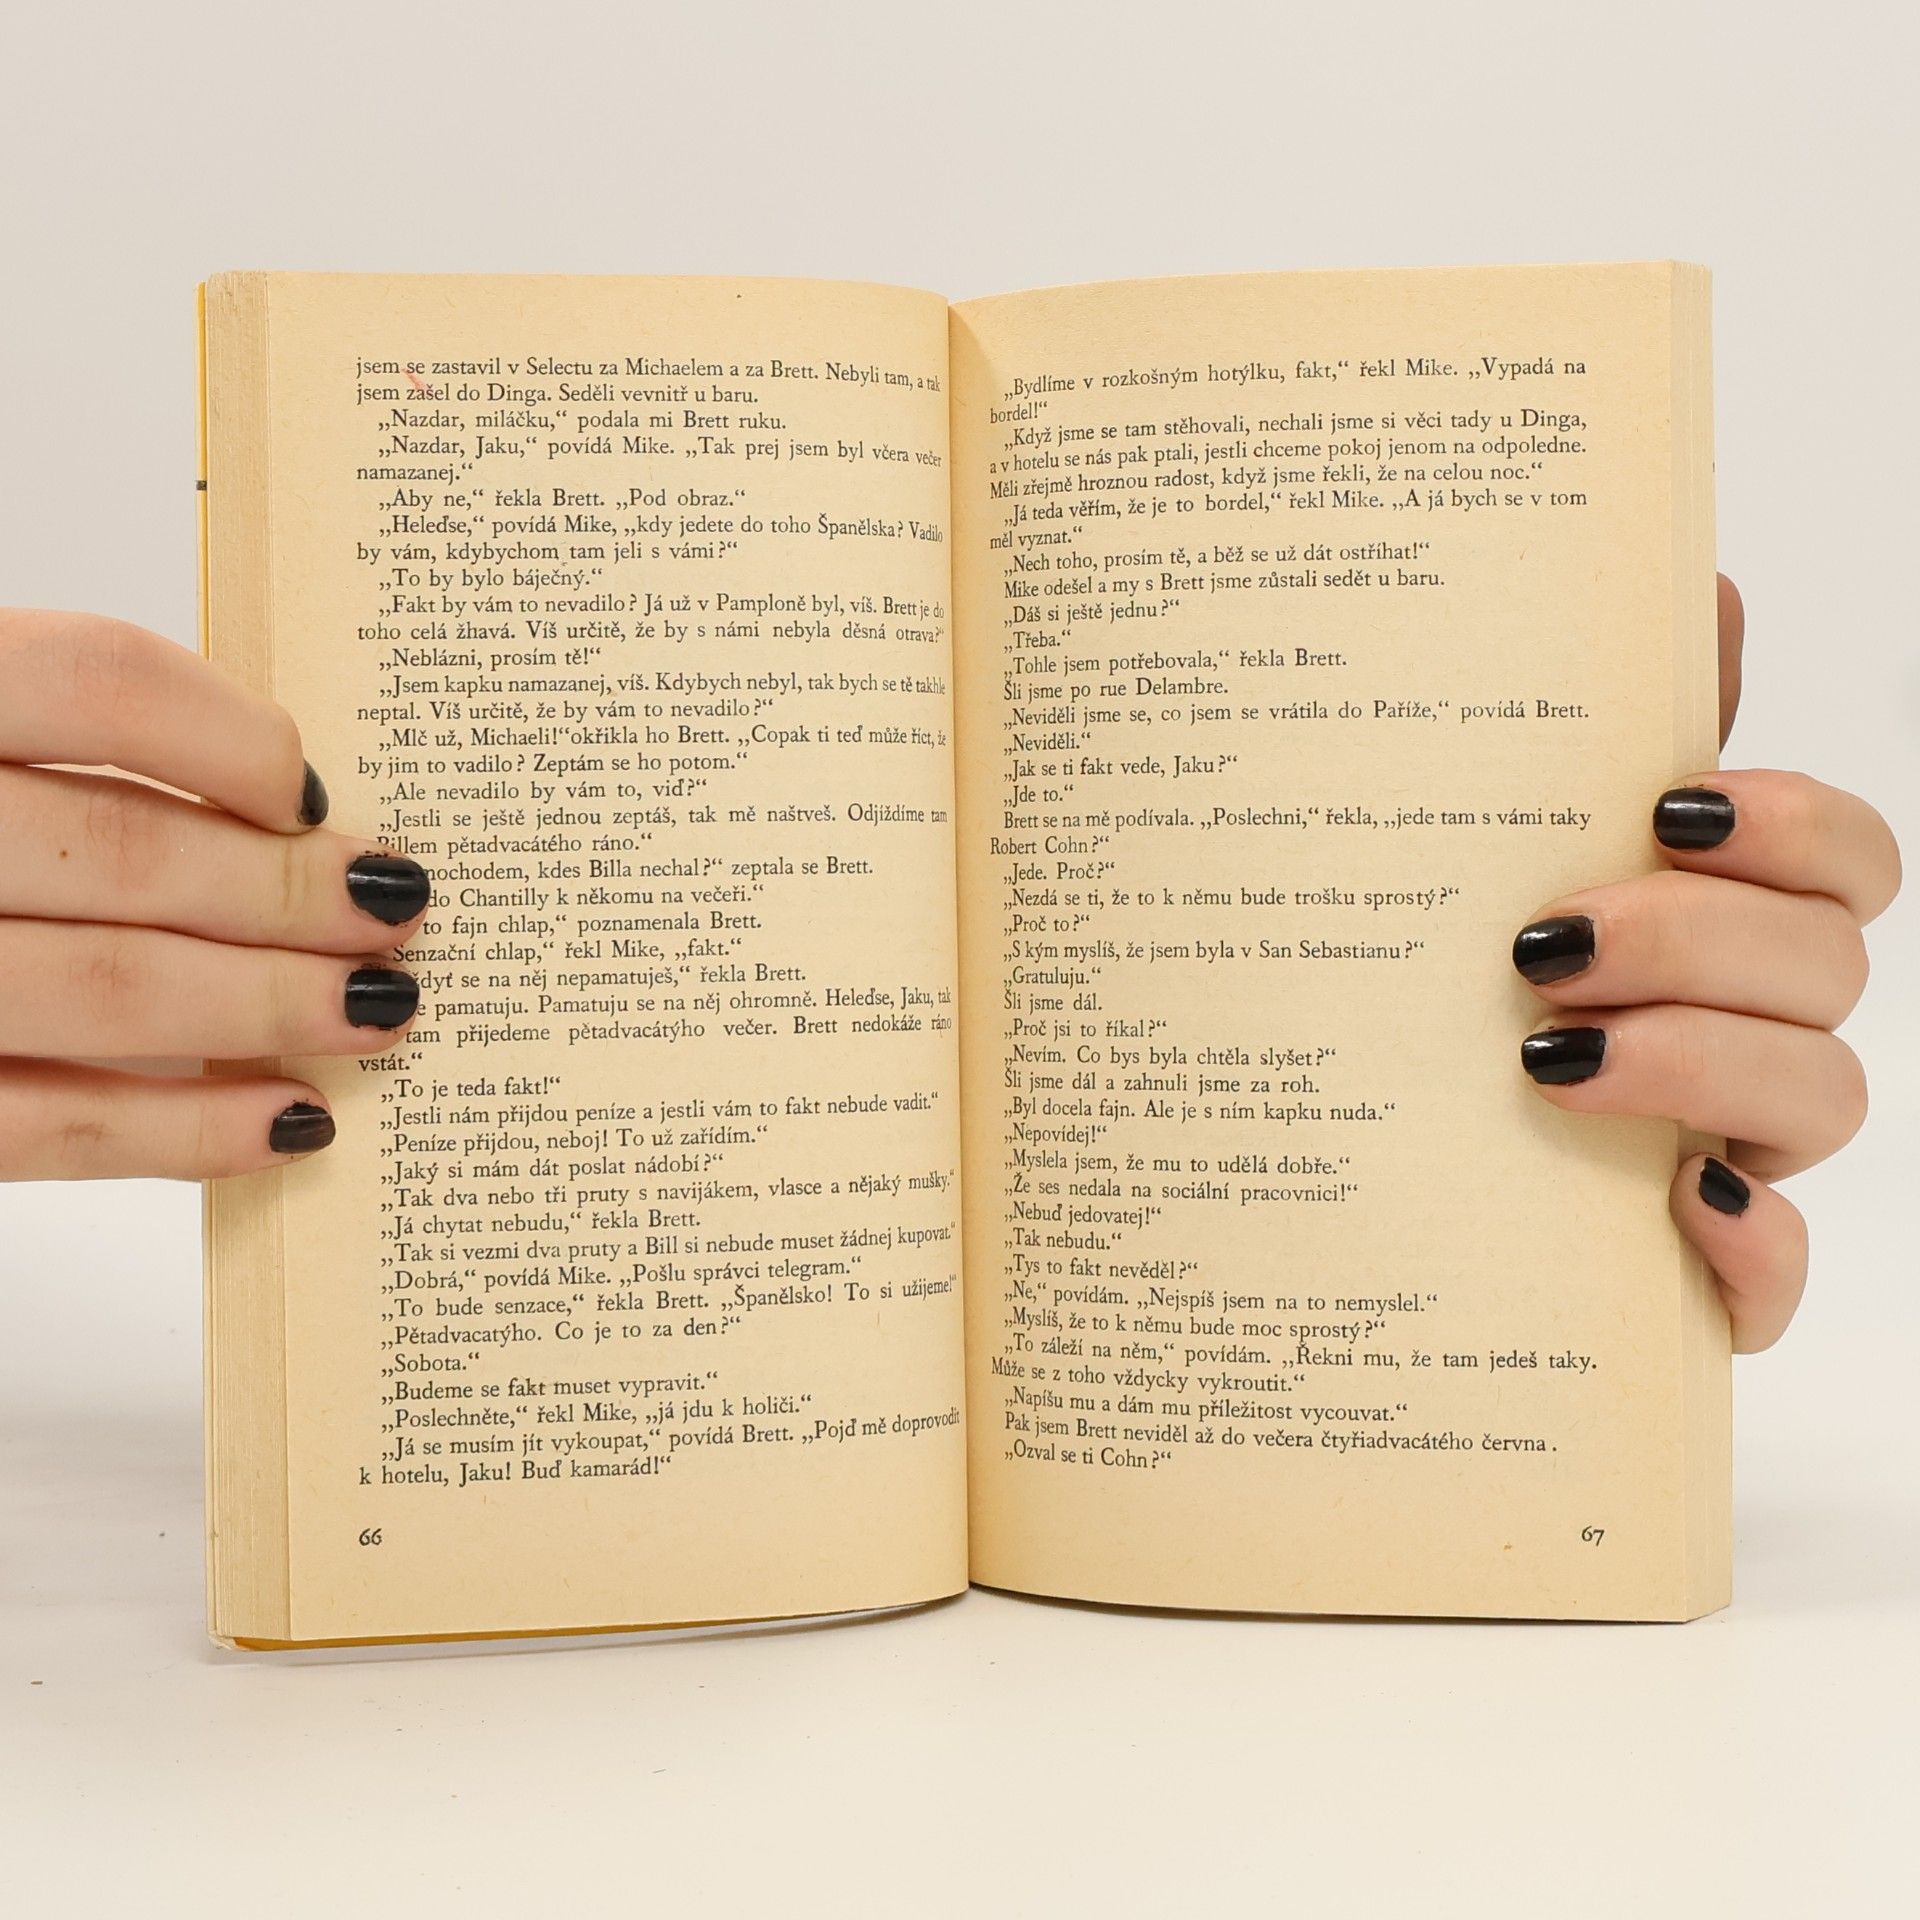 jsem se zastavil v Selectu za Michaelem a za Brett. Nebyli tam, a tak
jsem zašel do Dinga. Seděli vevnitř u baru.
„Nazdar, miláčku,“ podala mi Brett ruku.
„Nazdar, Jaku,“ povídá Mike. „Tak prej jsem byl včera večer
namazanej.“
„Aby ne,“ řekla Brett. „Pod obraz.“
„Heleďse,“ povídá Mike, „kdy jedete do toho Španělska? Vadilo
by vám, kdybychom tam jeli s vámi?“
„To by bylo báječný.“
„Fakt by vám to nevadilo? Já už v Pamploně byl, víš. Brett je do
toho celá žhavá. Víš určitě, že by s námi nebyla děsná otrava?“
„Neblázni, prosím tě!“
„Jsem kapku namazanej, víš. Kdybych nebyl, tak bych se tě takhle
neptal. Víš určitě, že by vám to nevadilo?“
„Mlč už, Michaeli!“okřikla ho Brett. „Copak ti teď může říct, že
by jim to vadilo? Zeptám se ho potom.“
„Ale nevadilo by vám to, viď?“
„Jestli se ještě jednou zeptáš, tak mě naštveš. Odjíždíme tam
Billem pětadvacátého ráno.“
mochodem, kdes Billa nechal?“ zeptala se Brett.
do Chantilly k někomu na večeři.“
to fajn chlap,“ poznamenala Brett.
Senzační chlap,“ řekl Mike, „fakt.“
ždyť se na něj nepamatuješ,“ řekla Brett.
e pamatuju. Pamatuju se na něj ohromně. Heleďse, Jaku, tak
tam přijedeme pětadvacátýho večer. Brett nedokáže ráno
vstát.“
„To je teda fakt!“
„Jestli nám přijdou peníze a jestli vám to fakt nebude vadit.“
„Peníze přijdou, neboj! To už zařídím.“
„Jaký si mám dát poslat nádobí?“
„Tak dva nebo tři pruty s navijákem, vlasce a nějaký mušky.“
„Já chytat nebudu,“ řekla Brett.
„Tak si vezmi dva pruty a Bill si nebude muset žádnej kupovat.“
„Dobrá,“ povídá Mike. „Pošlu správci telegram.“
„To bude senzace,“ řekla Brett. „Španělsko! To si užijeme!“
„Pětadvacatýho. Co je to za den?“
„Sobota.“
„Budeme se fakt muset vypravit.“
„Poslechněte,“ řekl Mike, „já jdu k holiči.“
„Já se musím jít vykoupat,“ povídá Brett. „Pojď mě doprovodit
k hotelu, Jaku! Buď kamarád!“
66
„Bydlíme v rozkošným hotýlku, fakt,“ řekl Mike. „Vypadá na
bordel!“
„Když jsme se tam stěhovali, nechali jsme si věci tady u Dinga,
a v hotelu se nás pak ptali, jestli chceme pokoj jenom na odpoledne.
Měli zřejmě hroznou radost, když jsme řekli, že na celou noc.“
„Já teda věřím, že je to bordel,“ řekl Mike. „A já bych se v tom
měl vyznat.“
„Nech toho, prosím tě, a běž se už dát ostříhat!“
Mike odešel a my s Brett jsme zůstali sedět u baru.
„Dáš si ještě jednu?“
„Třeba.“
„Tohle jsem potřebovala,“ řekla Brett.
Šli jsme po rue Delambre.
„Neviděli jsme se, co jsem se vrátila do Paříže,“ povídá Brett.
„Neviděli.“
„Jak se ti fakt vede, Jaku?“
„Jde to.“
Brett se na mě podívala. „Poslechni,“ řekla, „jede tam s vámi taky
Robert Cohn?“
„Jede. Proč?“
„Nezdá se ti, že to k němu bude trošku sprostý?“
„Proč to?“
„S kým myslíš, že jsem byla v San Sebastianu?“
„Gratuluju.“
Šli jsme dál.
„Proč jsi to říkal?“
„Nevím. Co bys byla chtěla slyšet?“
Šli jsme dál a zahnuli jsme za roh.
„Byl docela fajn. Ale je s ním kapku nuda.“
„Nepovídej!“
„Myslela jsem, že mu to udělá dobře.“
„Že ses nedala na sociální pracovnici!“
„Nebuď jedovatej!“
„Tak nebudu.“
„Tys to fakt nevěděl?“
„Ne,“ povídám. „Nejspíš jsem na to nemyslel.“
„Myslíš, že to k němu bude moc sprostý?“
„To záleží na něm,“ povídám. „Řekni mu, že tam jedeš taky.
Může se z toho vždycky vykroutit.“
„Napíšu mu a dám mu příležitost vycouvat.“
Pak jsem Brett neviděl až do večera čtyřiadvacátého června.
„Ozval se ti Cohn?“
67